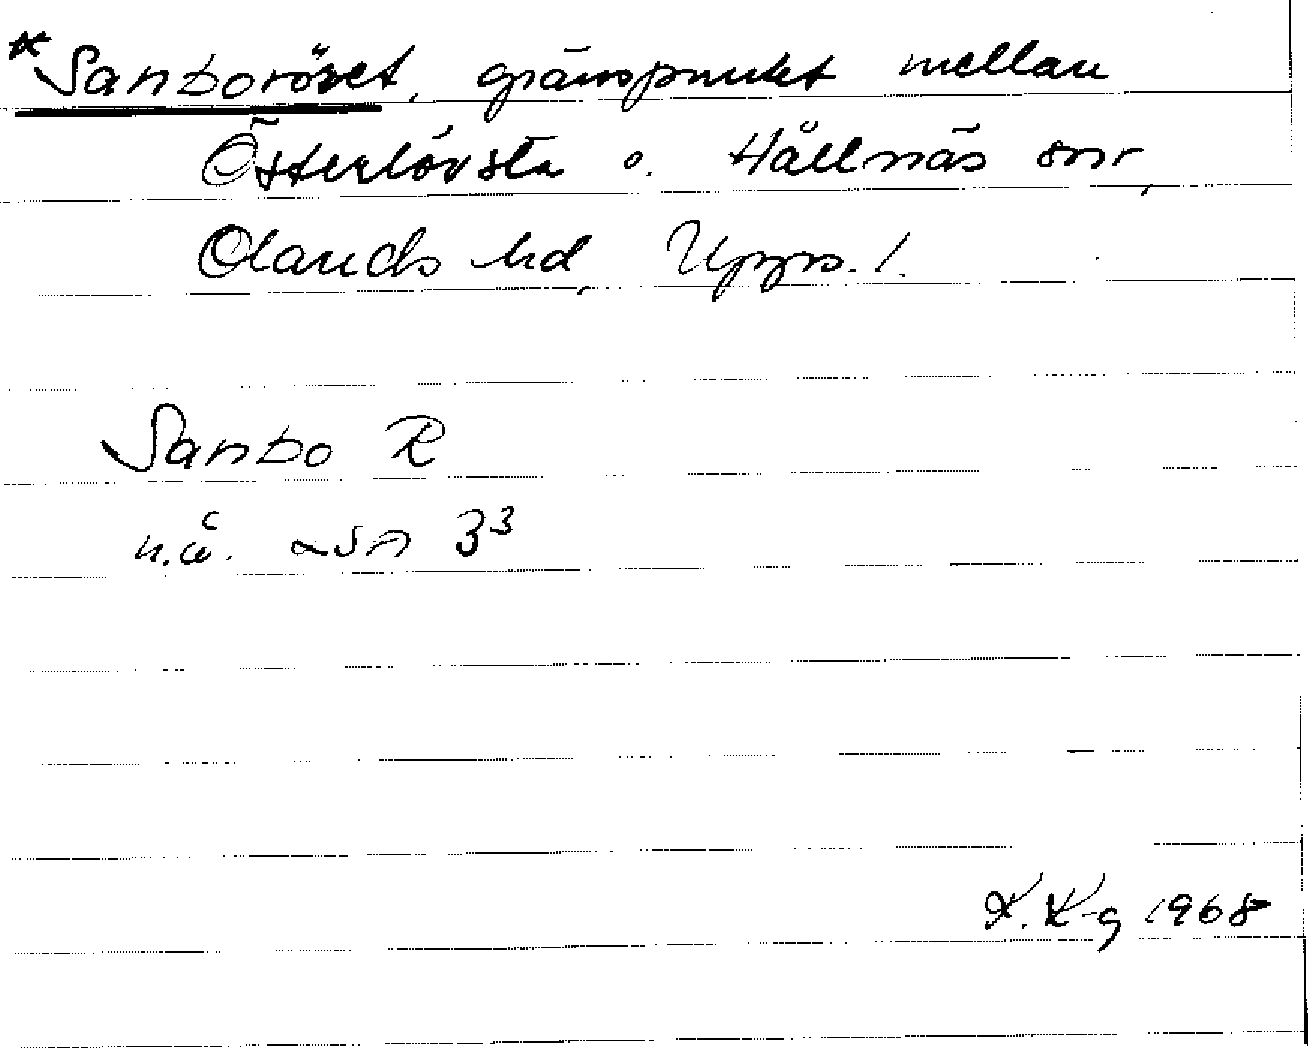 *Sanboröset, gränspunkt mellan
Österlövsta o. Hållnäs snr,
Olands hd, Upps. l.
Sanbo R
n.ä. LSA 3³
K. K-g 1968